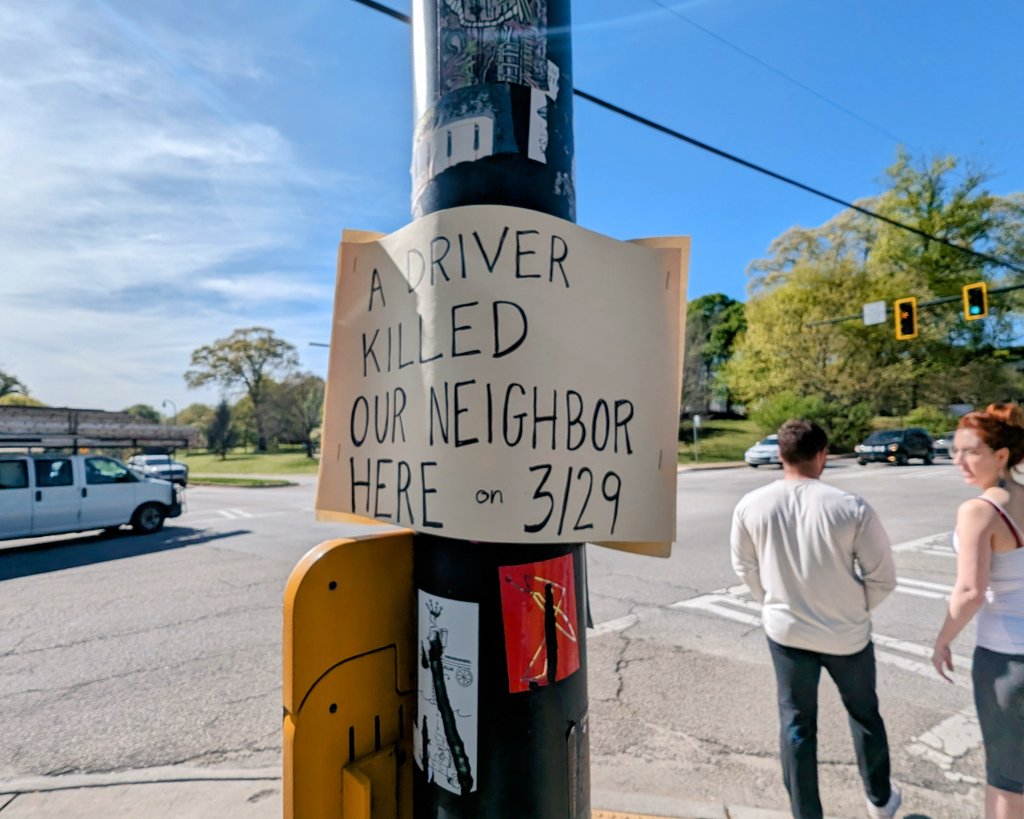 A DRIVER
KILLED
OUR NEIGHBOR
HERE on 3/29